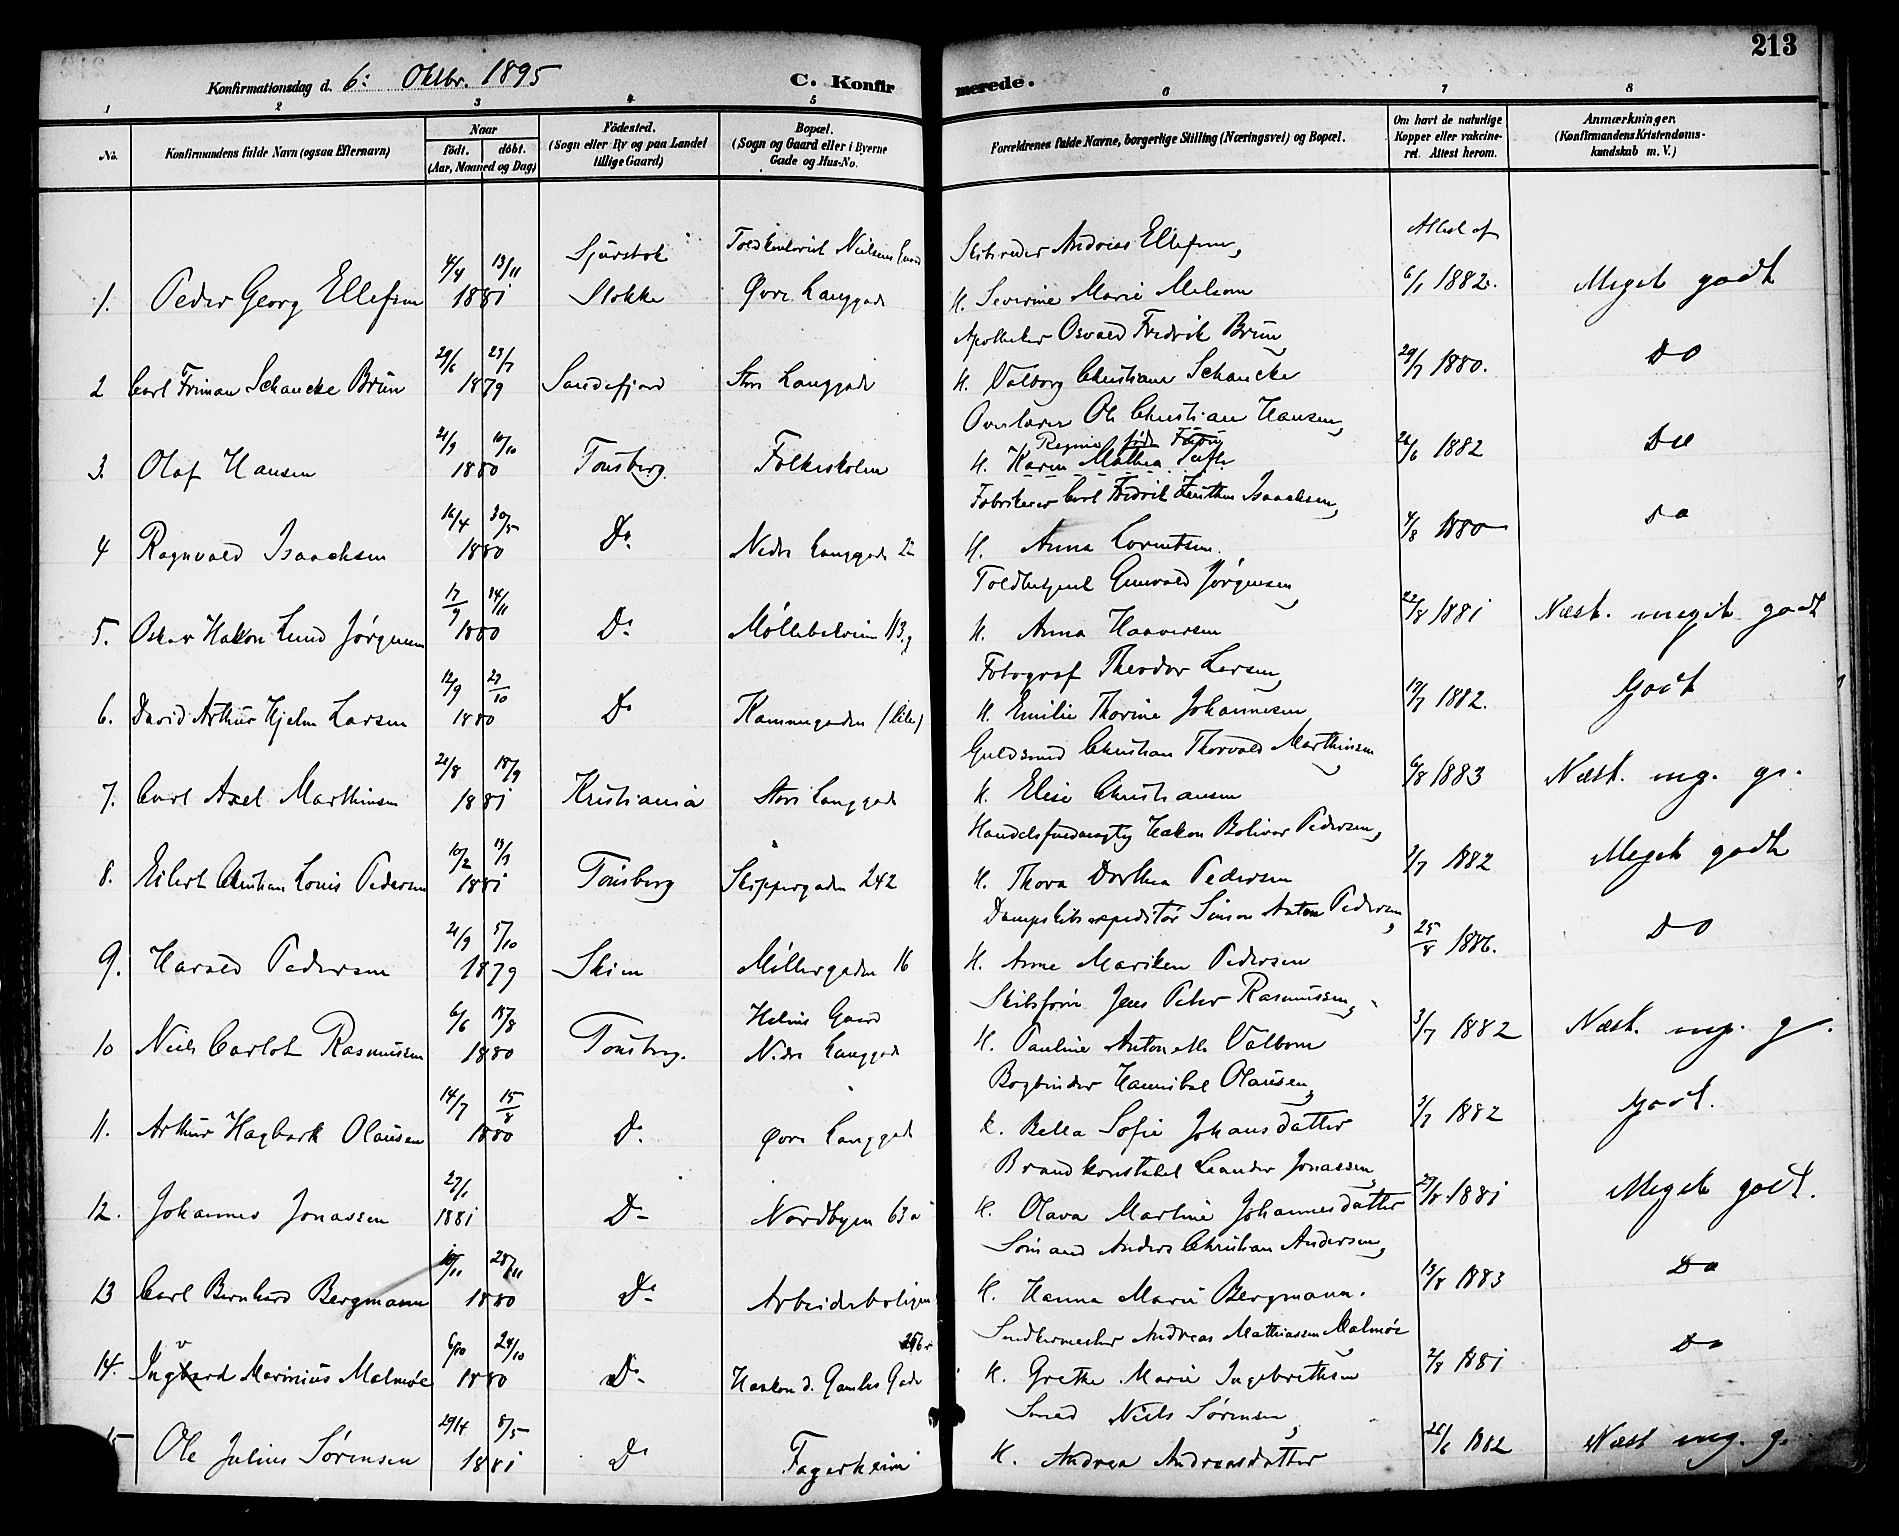 213
Konfirmationsdag d. 6: Oktbr. 1895
C. Konfirmerede.
1 2 3 4 5 6 7 8
No.
Konfirmandens fulde Navn (ogsaa Efternavn)
Naar født. døbt. (Aar, Maaned og Dag)
Födested. (Sogn eller By og paa Landet tillige Gaard)
Bopæl. (Sogn og Gaard eller i Byerne Gade og Hus-No.
Forældrenes fulde Navne, borgerlige Stilling (Næringsvei) og Bopæl.
Om havt de naturlige Kopper eller vakcineret. Attest herom.
Anmærkninger. (Konfirmandens Kristendomskundskab m. V.)
Attest af
1. Peder Georg Ellefsen 4/4 13/11 1881 Stokke Øvre Langgade
Skibsreder Andreas Ellefsen, H. Severine Marie Melsom 6/1 1882. Meget godt
2 Carl Friman Schancke Brün 29/6 23/7 1879 Sandefjord Store Langgade
Apotheker Osvald Fredrik Brün, H. Valborg Christiane Schancke 29/7 1880. Do
3. Olaf Hansen 21/9 10/10 1880 Tønsberg Folkeskolen
Overlærer Ole Christian Hansen, H. Karen Mathea 26/6 1882 Do
4 Ragnvald Isaachsen 16/4 30/5 1880 Do Nedre Langgade
Fabrikeier Carl Fredrik Isaachsen, H. Anna Lorentsen. 4/8 1880 Do
5. Oskar Hakon Lund Jørgensen 17/9 14/11 1880 Do Møllebakken 113
Toldbetjent Gunvald Jørgensen, H. Anna Haaversen 22/8 1881 Næst. meget godt
6. David Arthur Hjelm Larsen 12/9 27/10 1880 Do Kammegaden (lille)
Fotograf Theodor Larsen, H. Emilie Thorine Johannesen 19/7 1882. Godt
7. Carl Axel Marthinsen 21/8 18/9 1881 Kristiania Store Langgade
Guldsmed Christian Thorvald Marthinsen, H. Elise Christiansen 6/8 1883 Næst. mg. gs.
8. Eilert Christian Louis Pedersen 10/2 13/3 1881 Tønsberg Skippergaden 242
Handelsfuldmægtig Hakon Bolivar Pedersen, H. Thora Dorthea Pedersen 3/7 1882 Meget godt
9. Harald Pedersen 21/9 5/10 1879 Skien Møllergaden 16
Dampskibsexpeditør Simon Anton Pedersen, H. Anne Mariken Pedersen 25/8 1886. Do
10 Niels Carlot Rasmussen 6/6 15/8 1880 Tønsberg. Helms Gaard Nedre Langgade
Skibsfører Jens Peter Rasmussen, H. Pauline Antonette Valbom 3/7 1882 Næst. mg. g.
11. Arthur Hagbark Olausen 14/7 15/8 1880 Do Øvre Langgade
Bogbinder Hannibal Olausen, H. Bella Sofie Johansdatter 3/7 1882 Godt.
12. Johannes Jonassen 27/1 1881 Do Nordbyen 63a
Brandkonstabel Leander Jonassen, H. Olava Martine Johannesdatter 27/8 1881 Meget godt.
13 Carl Bernhard Bergmann 28/11 1880 Do Arbeiderboligen
Sømand Anders Christian Andersen, H. Hanna Marie Bergmann. 13/8 1883 Do
14. Ingvard Marinius Malmøe 6/10 24/10 1880 Do Haakon d. Gamles Gade
Snedkermester Andreas Mathiassen Malmøe, H. Grethe Marie Ingebrethsen 2/8 1881 Do
15 Ole Julius Sørensen 29/4 8/5 1881 Do Fagerheim
Smed Niels Sørensen, H. Andrea Andreasdatter 26/6 1882 Næst mg. g.